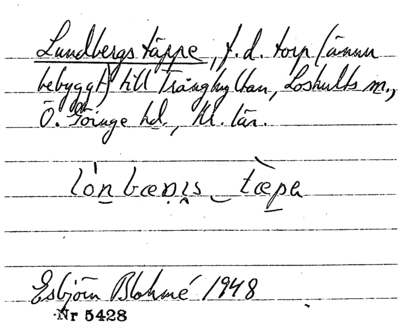 Lundbergstäppe, f.d. torp (ännu
bebyggt) till Trånghyltan, Loshults sn.,
Ö. Göinge hd, Kr. län.
lòn bæṇįs_tæpa
Esbjörn Blohmé 1948
Nr 5428